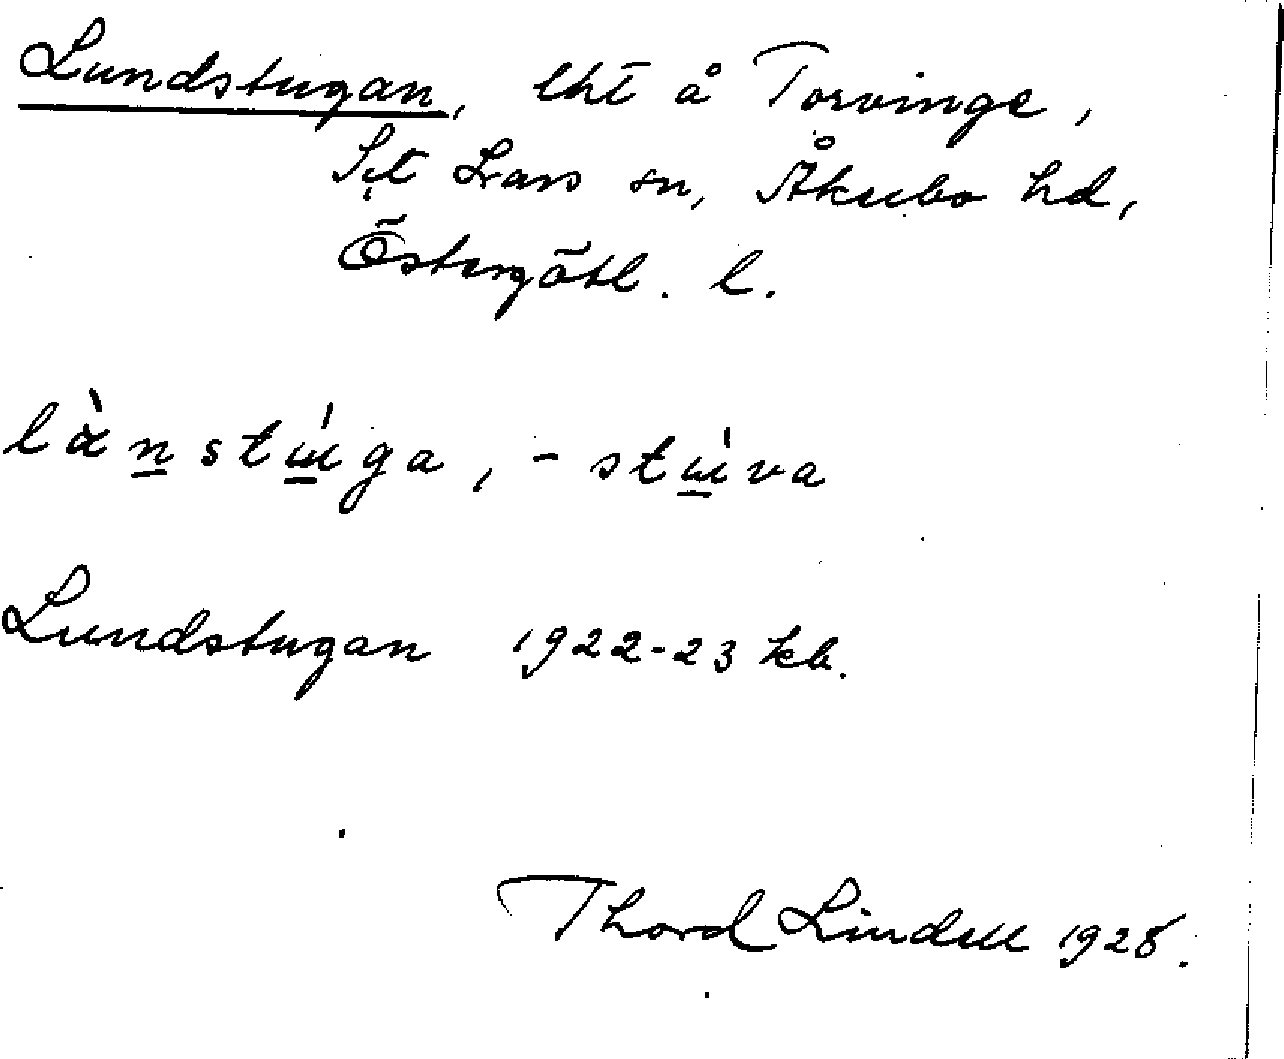 Lundstugan, lht å Torvinge,
S:t Lars sn, Åkerbo hd,
Östergötl. l.
lànstúga, -stúva
Lundstugan 1922-23 kb.
Thord Lindell 1928.